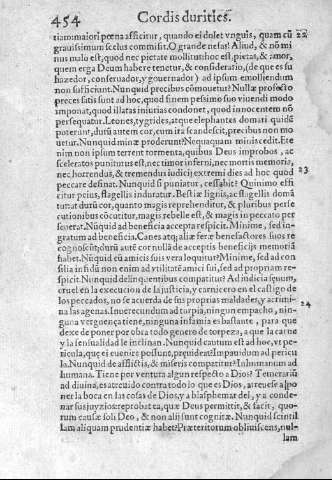 454 Cordis durities.
tiam maiori pœna afficitur, quando ei dolet vnguis, quam cũ 22
grauissimum scelus commisit. O grande nefas! Aliud, & nõ mi
nus malo est, quod nec pietate mollitur: hoc est, pietas, & amor,
quem erga Deum habere tenetur, & consideratio, (de que es su
hazedor, conseruador, y gouernador) ad ipsum emolliendum
non sufficiunt. Nunquid precibus cõmouetur? Nullæ profecto
preces satis sunt ad hoc, quod finem pessimo suo viuendi modo
imponat, quod illatas iniurias condonet, quod innocentem nõ
persequatur. Leones, tygrides, atque elephantes domati quidẽ
poterunt, durũ autem cor, cum ira scandescit, precibus non mo
uetur. Nunquid minæ proderunt? Nequaquam minis cedit. Ete
nim non ipsum terrent tormenta, quibus Deus improbos, ac
sceleratos puniturus est, nec timor inferni, nec mortis memoria,
nec horrendus, & tremendus iudicij extremi dies ad hoc quod
peccare desinat. Nunquid si puniatur, cessabit? Quinimo effi 23
citur peius, flagellis induratur. Bestiæ lignis, ac flagellis domã
tur: at durũ cor, quanto magis reprehenditur, & pluribus perse
cutionibus cõcutitur, magis rebelle est, & magis in peccato per
seuerat. Nũquid ad beneficia accepta respicit. Minime, sed in-
gratum ad beneficia. Canes atq; aliæ feræ benefactores suos re
cognoscũt, durũ autẽ cor nullã de acceptis beneficijs memoriã
habet. Nũquid eũ amicis suis vera loquitur? Minime, sed ad con
silia infidũ non enim ad vtilitatẽ amici sui, sed ad propriam re-
spicit. Nunquid delinquentibus compatitur? Ad iudicia sæuum,
cruel en la execucion de la justicia, y carnicero en el castigo de
los pecados, no se acuerda de sus proprias maldades, y acrimi-
na las agenas. Inuerecundum ad turpia, ningun empacho, nin- 24
guna verguença tiene, ninguna infamia es bastante, para que
dexe de poner por obra todo genero de torpeza, a que la carne
y la sensualidad le inclinan. Nunquid cautum est ad hoc, vt pe-
ricula, que ei euenire possunt, præuideat? Impauidum ad pericu
la. Nunquid de afflictis, & miseris compatitur? Inhumanum ad
humana. Tiene por ventura algun respecto a Dios? Temerariũ
ad diuina, es atreuido contra todo lo que es Dios, atreuese a po
ner la boca en las cosas de Dios, y a blasphemar del, y a conde-
nar sus juyzios: reprobat ea, quæ Deus permittit, & facit, quo-
rum causæ soli Deo, & non alij sunt cognitæ. Nunquid scintil
lam aliquam prudentiæ habet? Præteritorum obliuiscens, nul-
lam